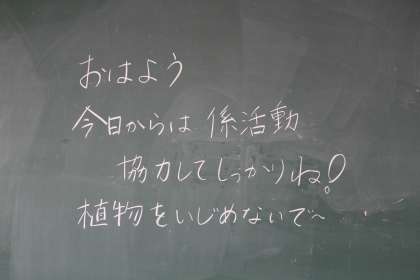 おはよう
今日からは 係活動
協力してしっかりね!
植物をいじめないで~